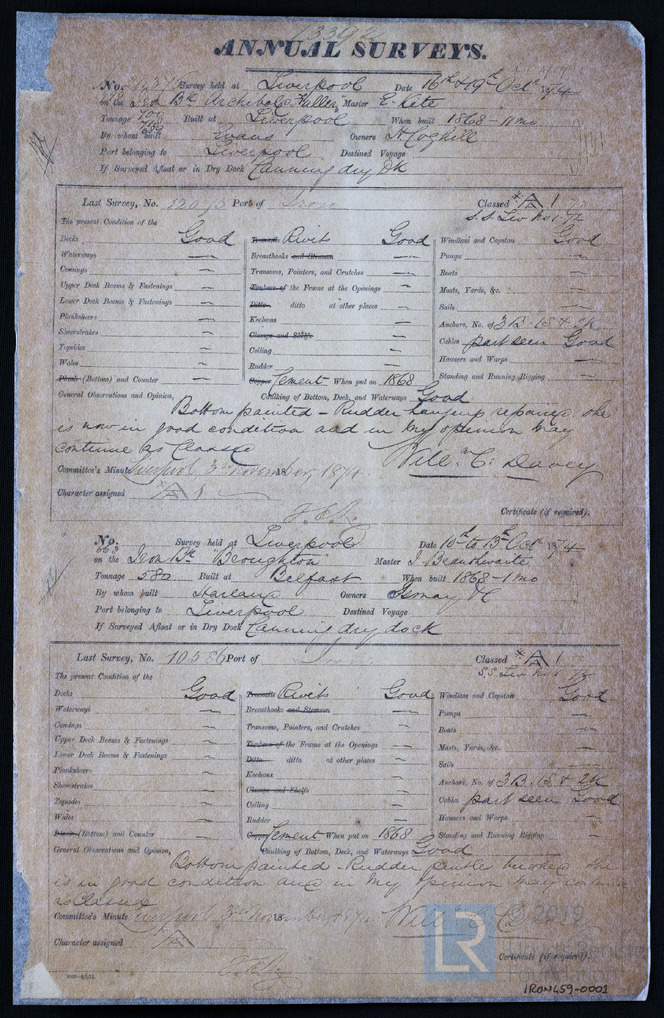 ANNUAL SURVEYS.
No. Survey held at Liverpool Date 16th & 19th Oct 1874
on the Iron Bk Archibald Fuller Master E. Kite
Tonnage 709 Built at Liverpool When built 1868 - 11 mo
By whom built Evans Owners
Port belonging to Liverpool Destined Voyage
If Surveyed Afloat or in Dry Dock Canning dry Dk
Last Survey, No. Port of Classed A 1
The present Condition of the
Decks Good
Waterways —
Comings —
Upper Deck Beams & Fastenings —
Lower Deck Beams & Fastenings —
Planksheers —
Sheerstrakes —
Topsides —
Wales —
Plank (Bottom) and Counter —
Treenails Rivets Good
Breasthooks and Stemson —
Transoms, Pointers, and Crutches —
Timbers of the Frame at the Openings —
Ditto ditto at other places —
Keelsons —
Clamps and Shelfs
Ceiling —
Rudder —
Copper Cement When put on 1868
Windlass and Capstan Good
Pumps —
Boats —
Masts, Yards, &c. —
Sails —
Anchors, No. of 3 B. 1 S &
Cables part seen Good
Hawsers and Warps —
Standing and Running Rigging —
General Observations and Opinion, Caulking of Bottom, Deck, and Waterways Good
Bottom painted - Rudder repairing. She
is now in good condition and in my opinion may
continue as Classed
Committee's Minute Liverpool 3rd November, 1874. Willm C. Davey
Character assigned A 1
Certificate (if required).
No. Survey held at Liverpool Date 10th to 13th Oct 1874
on the Iron Bk "Broughton" Master J. Braithwaite
Tonnage 580 Built at Belfast When built 1868 - 1 mo
By whom built Harland Owners Ismay & C
Port belonging to Liverpool Destined Voyage
If Surveyed Afloat or in Dry Dock Canning dry dock
Last Survey, No. 10586 Port of Classed A 1
The present Condition of the
Decks Good
Waterways —
Comings —
Upper Deck Beams & Fastenings —
Lower Deck Beams & Fastenings —
Planksheers —
Sheerstrakes —
Topsides —
Wales —
Plank (Bottom) and Counter —
Treenails Rivets Good
Breasthooks and Stemson —
Transoms, Pointers, and Crutches —
Timbers of the Frame at the Openings —
Ditto ditto at other places —
Keelsons —
Clamps and Shelfs
Ceiling —
Rudder —
Copper Cement When put on 1868
Windlass and Capstan Good
Pumps —
Boats —
Masts, Yards, &c. —
Sails —
Anchors, No. of 3 B. 1 S & 2 K
Cables part seen Good
Hawsers and Warps —
Standing and Running Rigging —
General Observations and Opinion, Caulking of Bottom, Deck, and Waterways Good
Bottom painted - Rudder pintles bushed. She
is in good condition and in my opinion may continue
as Classed
Committee's Minute Liverpool 3rd November 1874 Willm C.
Character assigned A
Certificate (if required).
LR © 2019
Lloyd's Register
Foundation
IRON459-0001